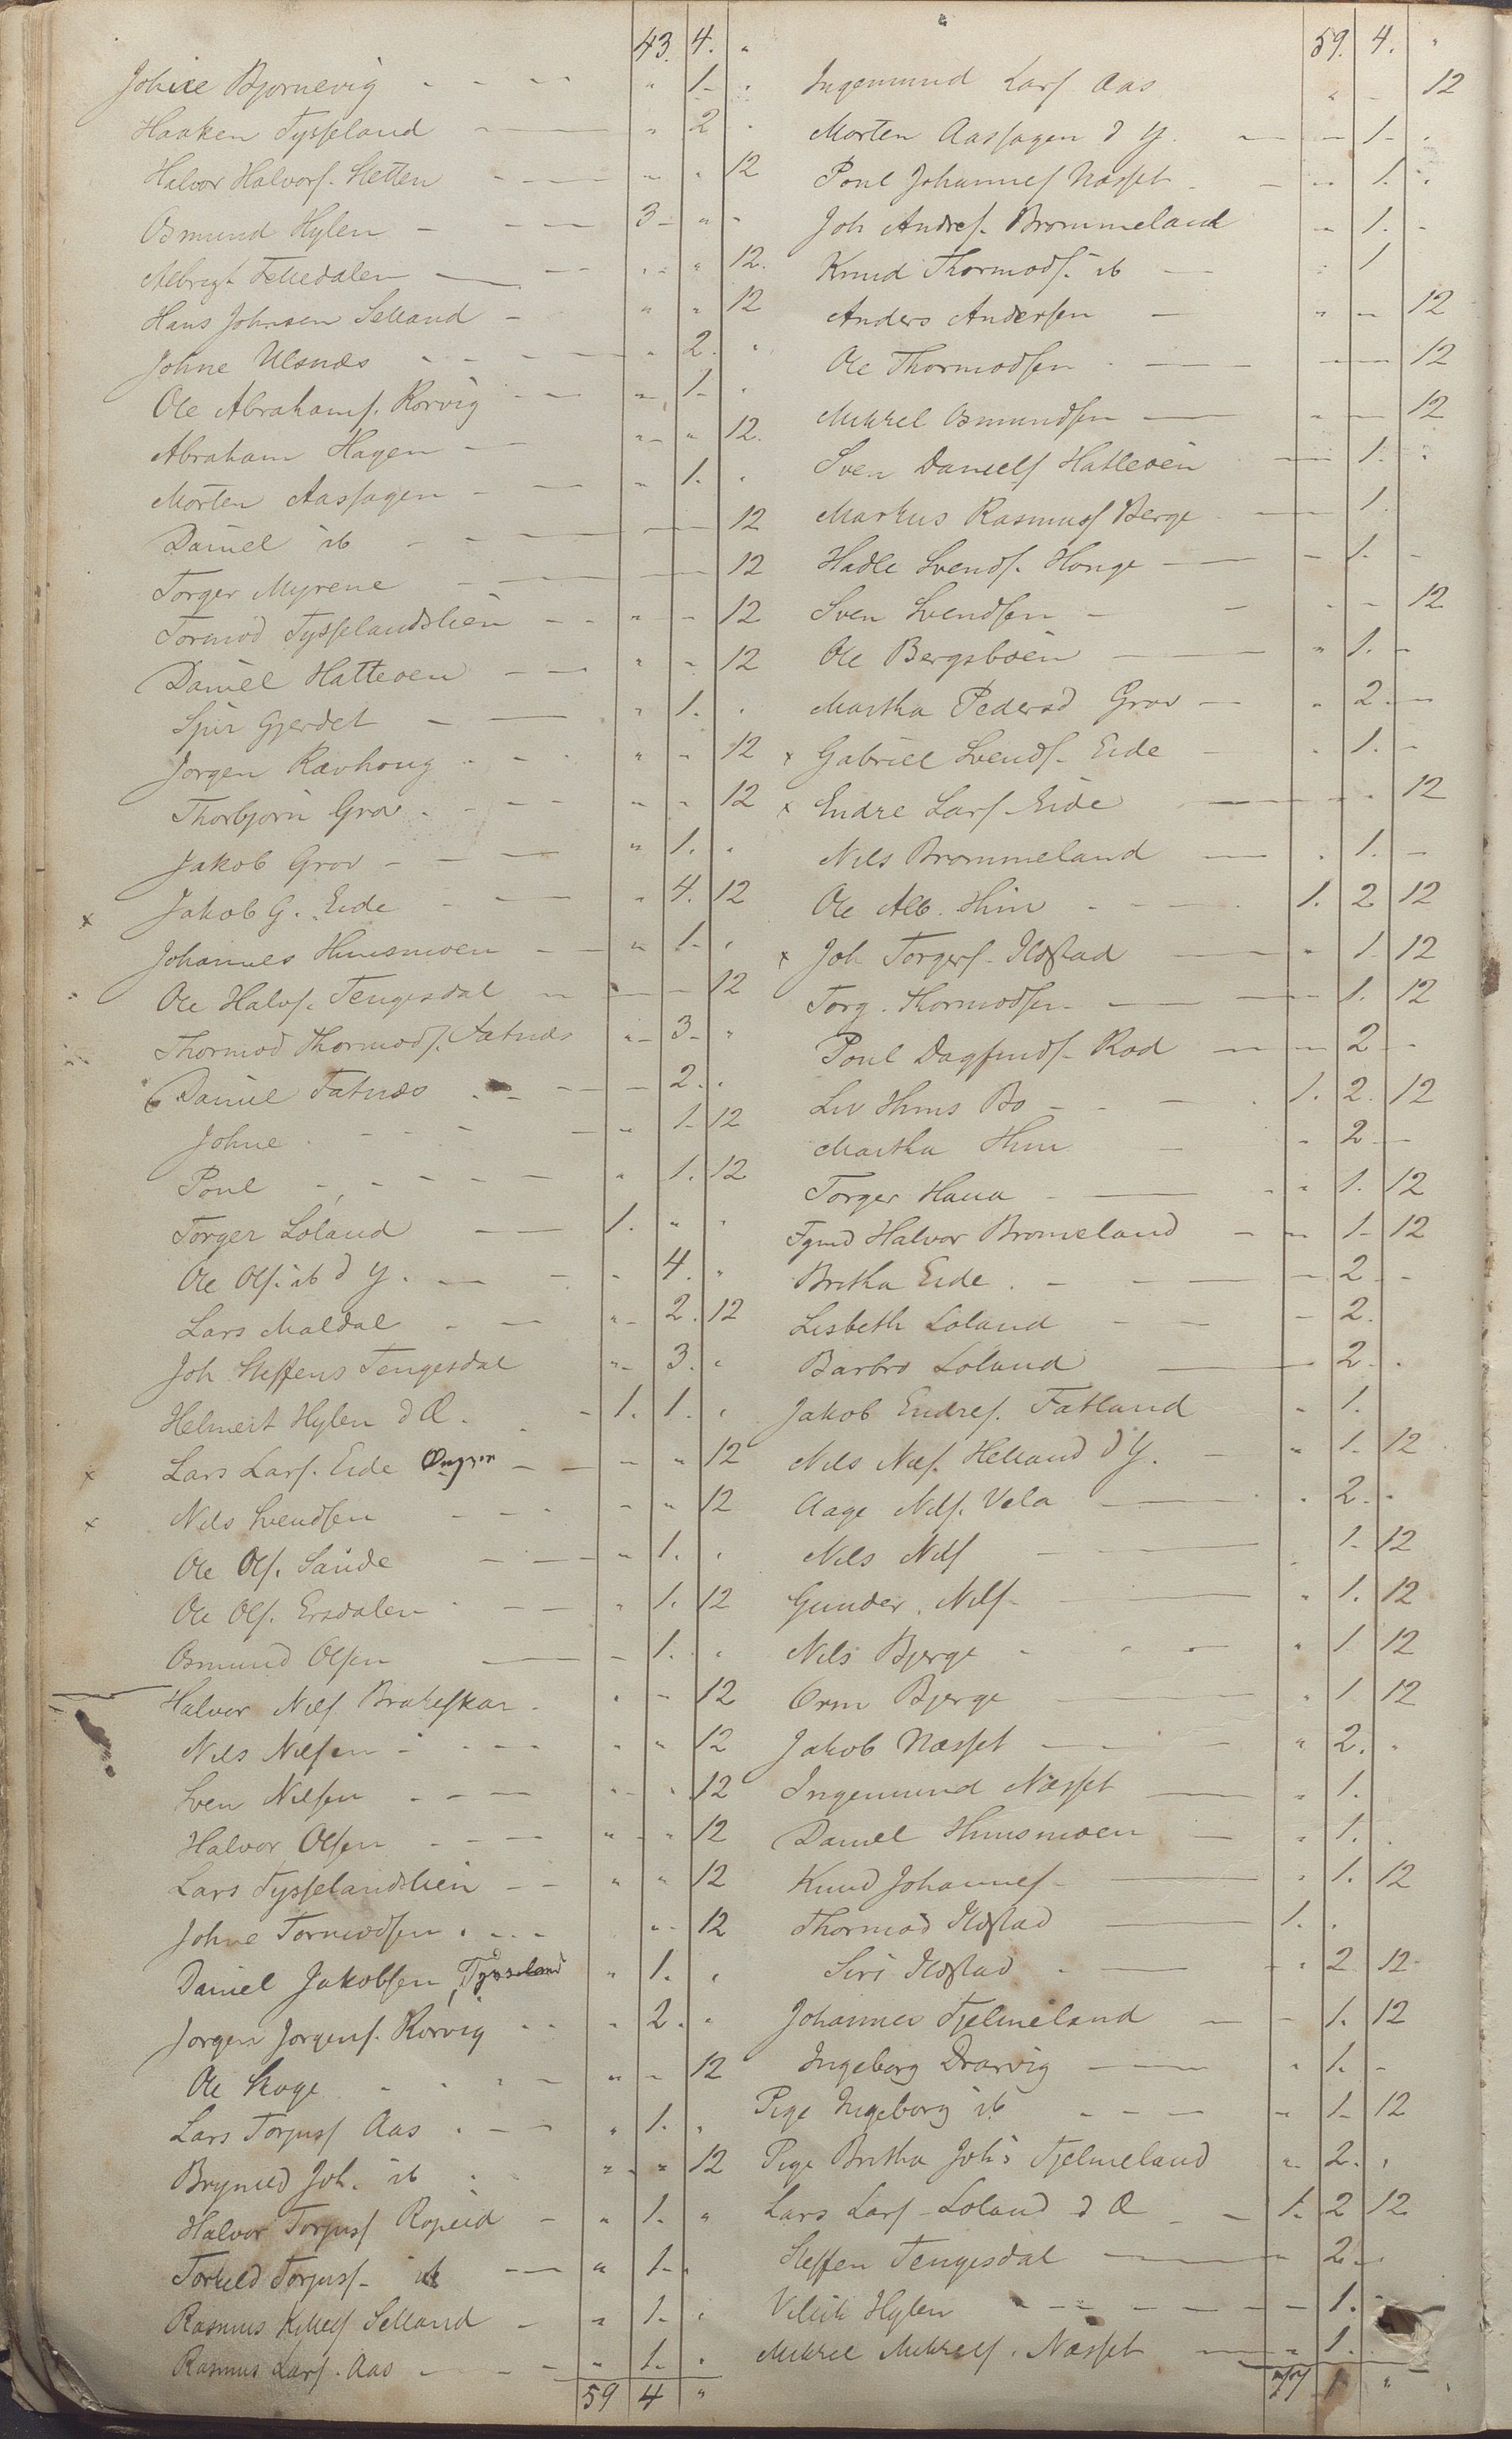 43. 4. "
Johne Bjornevig - - - - " 1- "
Haaken Tysseland - — " 2 "
Halvor Halvors. Stetten - — " " 12
Osmund Hylen - - - — 3- " "
Albregt Fattedalen — - - " " 12.
Hans Johnsen Selland - " " 12
Johne Ulsnæs - - - - — " 2. "
Ole Abrahams. Korvig - - — " 1- "
Abraham Hagen - — " " 12.
Morten Aashagen - — " 1. "
Daniel ib - - — — 12
Torger Myrene - — — 12
Tormod Tysselandslien - - " - 12
Daniel Hatteoen - - — " " 12
Gjerdet - — " 1. "
Jorgen Ravhoug - - - " - 12
Thorbjorn Grov - - - - " " 12
Jakob Grov - - — " 1. "
x Jakob G. Eide - - — " 4. 12
Johannes Huusmoen - — " 1- "
Ole Halvs. Tengesdal - — - 12
Thormod Thormods. Fatnæs " 3- "
Daniel Fatnæs - - - — 2. "
Johne - - - - — " 1- 12
Poul - - - - - " 1. 12
Torger Loland - — 1. " "
Ole Ols. ib d Y. — - - 4. "
Lars Maldal - - — " 2. 12
Joh Steffens Tengesdal " 3. "
Helmert Hylen d Æ. - - 1. 1. "
x Lars Lars. Eide - - - " 12
x Nils Svendsen - - - - " 12
Ole Ols. Saude - - — " 1. "
Ole Ols. Ersdalen - - — " 1. 12
Osmund Olsen — - 1. "
Halvor Nils Brakeskar - " - 12
Nils Nilsen - - - - " " 12
Sven Nilsen - - - " " 12
Halvor Olsen - - - " " 12
Lars Tysselandslien - - " " 12
Johne Tormodsen - - - " - 12
Daniel Jakobsen, Tysseland " 1. "
Jorgen Jorgens. Korvig - - " 2. "
Ole Skoge - - - - " - 12
Lars Torjuss Aas - - - " 1. "
Brynild Joh. ib - - " " 12
Halvor Torjuss Ropeid - " 1. "
Torkild Torjuss- ib - — " 1- "
Rasmus Selland - " 1- "
Rasmus Lars. Aas - - - " 1- "
59 4 "
59. 4. "
Ingemund Lars Aas " - 12
Morten Aashagen d Y. — - 1- "
Poul Johannes Næsset - - " 1. "
Joh Andres. Brommeland " 1. -
Knud Thormods. ib — " 1
Anders Andersen — " - 12
Ole Thormodsen - — - — 12
Mikkel Osmundsen — " — 12
Sven Daniels Hatleoen — 1. "
Markus Rasmuss Berge — 1.
Hadle Svends. Honge — - 1. -
Sven Svendsen - - " - 12
Ole Bergsboen — " 1. -
Martha Pedersd Grov - " 2. -
x Gabriel Svends. Eide - " 1. -
x Endre Lars- Eide — - " 12
Nils Brommeland — " 1. -
Ole Alb. Hiim - - - - 1. 2 12
x Joh Torgers- Ilstad — " 1- 12
Torg. Thormodsen — — 1. 12
Poul Dagfinds- Rod — - 2 -
Liv Hiims Bo - - - - 1. 2. 12
Martha Hiim - " 2 -
Torger Haua - — " " 1. 12
Halvor Bromeland - " 1- 12
Britha Eide - - - — - 2 -
Lisbeth Loland - - - 2.
Barbro Loland — 2. "
Jakob Endres. Fatland " 1.
Nils Nils. Helland d Y. - " 1- 12
Aage Nils. Vela — " 2. "
Nils Nils - — " 1- 12
Gunder Nils- - — " 1. 12
Nils Bjerge - - - - " 1 12
Orm Bjerge — " 1 12
Jakob Næsset — - " 2. "
Ingemund Næsset — " 1.
Daniel Huusmoen — " 1. "
Knud Johannes- — " 1. 12
Thormod Ilstad — 1. "
Siri Ilstad - — - " 2 12
Johannes Fjelmeland — - 1. 12
Ingeborg Drarvig — " 1. -
Pige Ingeborg ib - - - " 1- 12
Pige Britha Joh's Fjelmeland " 2. "
Lars Lars- Loland d Æ - - 1. 2 12
Steffen Tengesdal — " 2. -
Hylen - - - - - - - 1.
Mikkel Mikkels. Næsset — " 1.
77 1 "